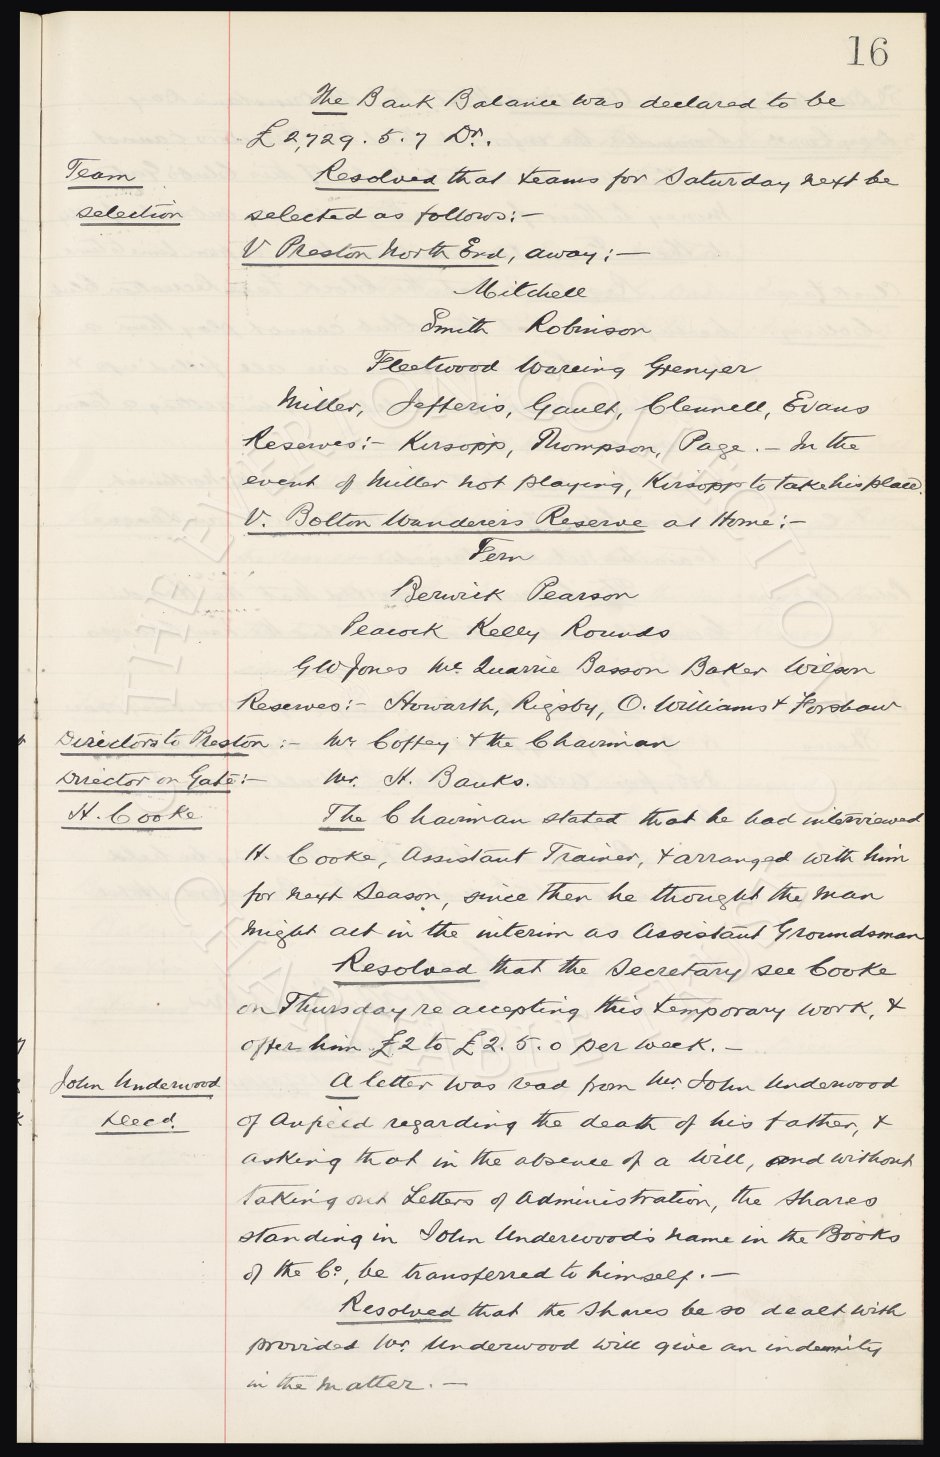 16
The Bank Balance was declared to be
£2,729. 5. 7 Dr.
Team
Resolved that teams for Saturday next be
selection
selected as follows:-
V Preston North End, away:-
Mitchell
Smith Robinson
Fleetwood Wareing Grenyer
Miller, Jefferis, Gault, Clennell, Evans
Reserves:- Kirsopp, Thompson, Page. - In the
event of Miller not playing, Kirsopp to take his place.
V. Bolton Wanderers Reserve at Home:-
Fern
Berwick Pearson
Peacock Kelly Rounds
G W Jones Mc. Quarrie Basson Baker Wilson
Reserves:- Howarth, Rigsby, O. Williams & Forshaw
Directors to Preston:- Mr Coffey & the Chairman
Director on Gate:- Mr. H. Banks.
H. Cooke
The Chairman stated that he had interviewed
H. Cooke, Assistant Trainer, & arranged with him
for next Season, since then he thought the man
might act in the interim as Assistant Groundsman
Resolved that the Secretary see Cooke
on Thursday re accepting this temporary work, &
offer him £2 to £2. 5. 0 per week. -
John Underwood
A letter was read from Mr. John Underwood
Deecd.
of Anfield regarding the death of his father, &
asking that in the absence of a Will, and without
taking out Letters of Administration, the shares
standing in John Underwood's name in the Books
of the Co., be transferred to himself. -
Resolved that the Shares be so dealt with
provided Mr. Underwood will give an indemnity
in the matter. -